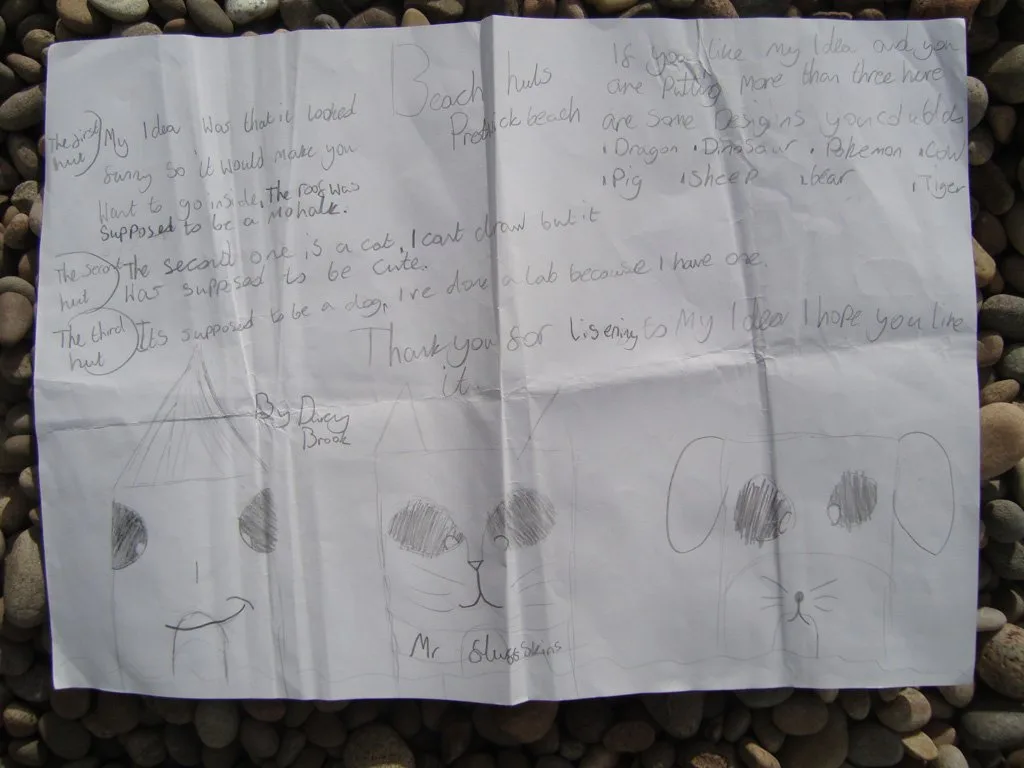 Beach huts
beach
(The first hut)
My Idea Was that it looked
funny so it would make you
Want to go inside, The roof was
supposed to be a mohalk.
(The second hut)
The second one is a cat, I cant draw but it
Was supposed to be cute.
(The third hut)
It's supposed to be a dog, I've done a lab because I have one.
If you like My Idea and you
are Putting More than three here
are some Designs you
• Dragon • Dinosaur • Pokemon • Cow
• Pig • Sheep • bear • Tiger
Thank you for listening to My Idea I hope you like
it
By
Brook
Mr